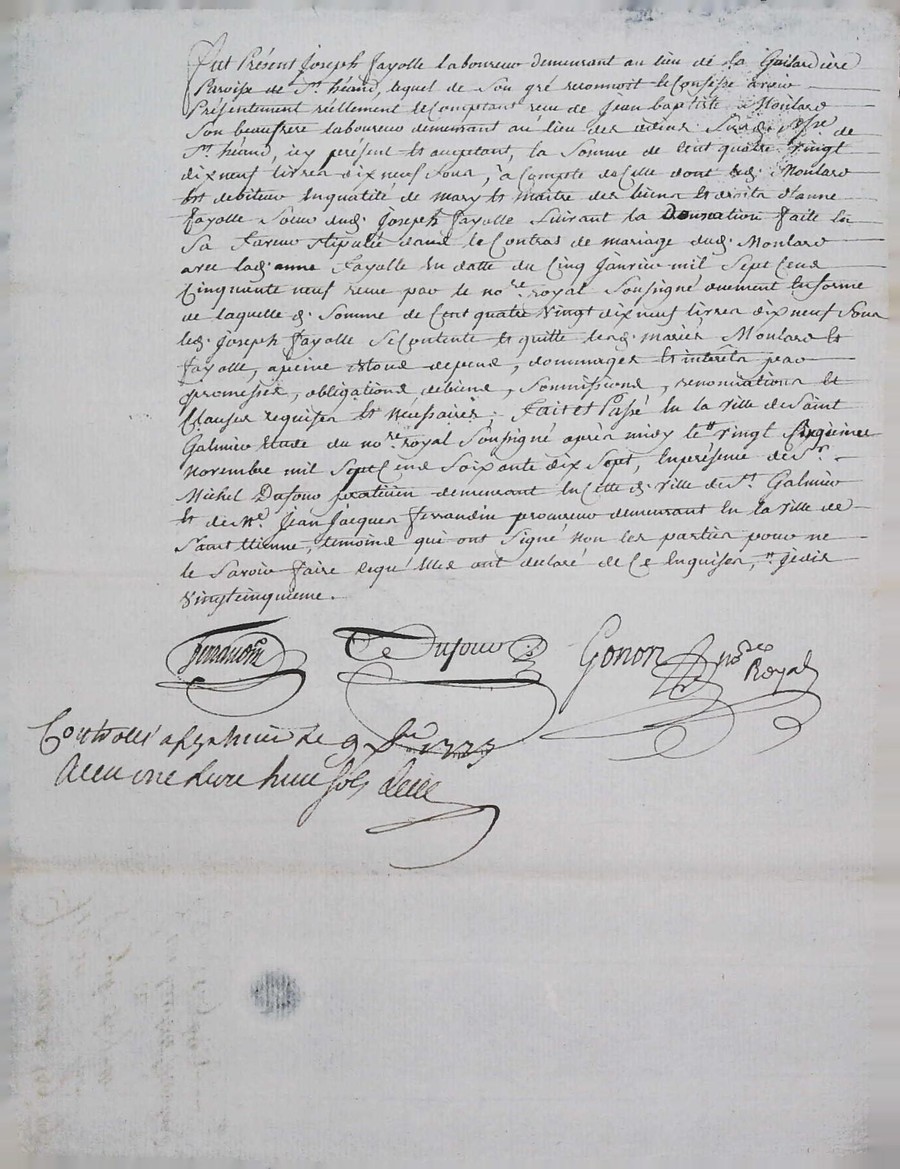 Fut Présent Joseph Fayolle laboureur demeurant au lieu de la Goilardière
Paroisse de St. héand, lequel de Son gré reconnoit et Confesse avoir
Présentement réellement et Comptant reçu de Jean baptiste Moulard
Son beaufrere laboureur demeurant au lieu des Susd. psse de
St. héand, icy présent et acceptant, la Somme de Cent quatre vingt
dix neuf livres dix neuf Sous, à Compte de Celle dont led. Moulard
est debiteur En qualité de mary et maitre des biens et droits d'anne
fayolle Soeur dud. Joseph fayolle Suivant la Donnation faite En
Sa faveur Stipulée dans le Contras de mariage dud. Moulard
avec lad. anne fayolle En datte du Cinq Janvier mil Sept Cens
Cinquante neuf reçu par le nore. royal Soussigné duement En forme
de laquelle d. Somme de Cent quatre vingt dix neuf livres dix neuf Sous
led. Joseph fayolle Se Contente et quitte lesd. mariés Moulard et
fayolle, apeine de tous depens, dommages et interêts par
promesses, obligations de biens, Soumissions, renonciations et
Clauses requises et Nécessaires; fait et Passé En la ville de Saint
Galmier étude du nore. royal Soussigné après midy le vingt
Novembre mil Sept Cens Soixante dix Sept, En présence de Sr.
Michel Dufour praticien demeurant En Cette d. ville de St. Galmier
et de Me. Jean Jacques ferrandin procureur demeurant En la ville de
Saint Etienne, témoins qui ont Signé non les parties pour ne
le Savoir faire Ce qu'Elles ont declaré de Ce Enquises, Je dis
vingtcinquieme.
ferrandin Dufour Gonon nore Royal
Controllé a St. galmier le 9 1777
Recu une livre huit sols